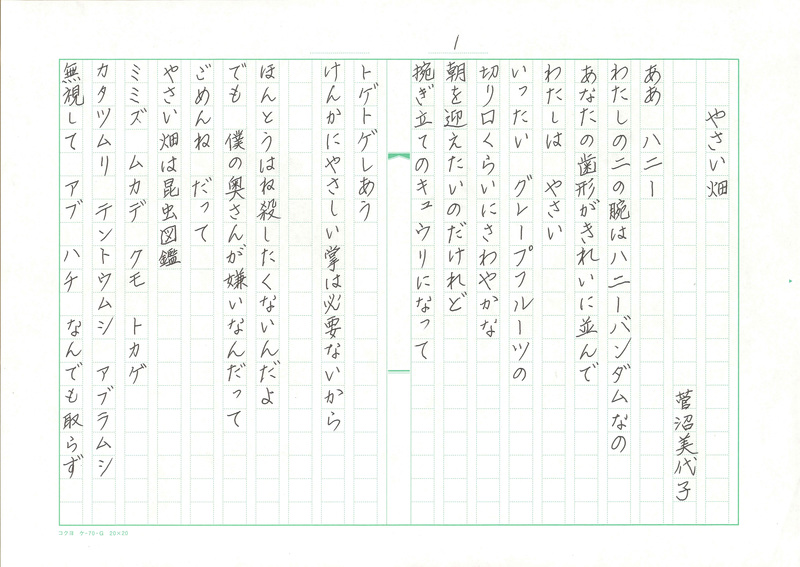 1
やさい畑
菅沼美代子
ああ　ハニー
わたしの二の腕はハニーバンダムなの
あなたの歯形がきれいに並んで
わたしは　やさい
いったい　グレープフルーツの
切り口くらいにさわやかな
朝を迎えたいのだけれど
捥ぎ立てのキュウリになって
トゲトゲしあう
けんかにやさしい掌は必要ないから
ほんとうはね殺したくないんだよ
でも　僕の奥さんが嫌いなんだって
ごめんね　だって
やさい畑は昆虫図鑑
ミミズ　ムカデ　クモ　トカゲ
カタツムリ　テントウムシ　アブラムシ
無視して　アブ　ハチ　なんでも取らず
コクヨ　ケ-70-G　20×20